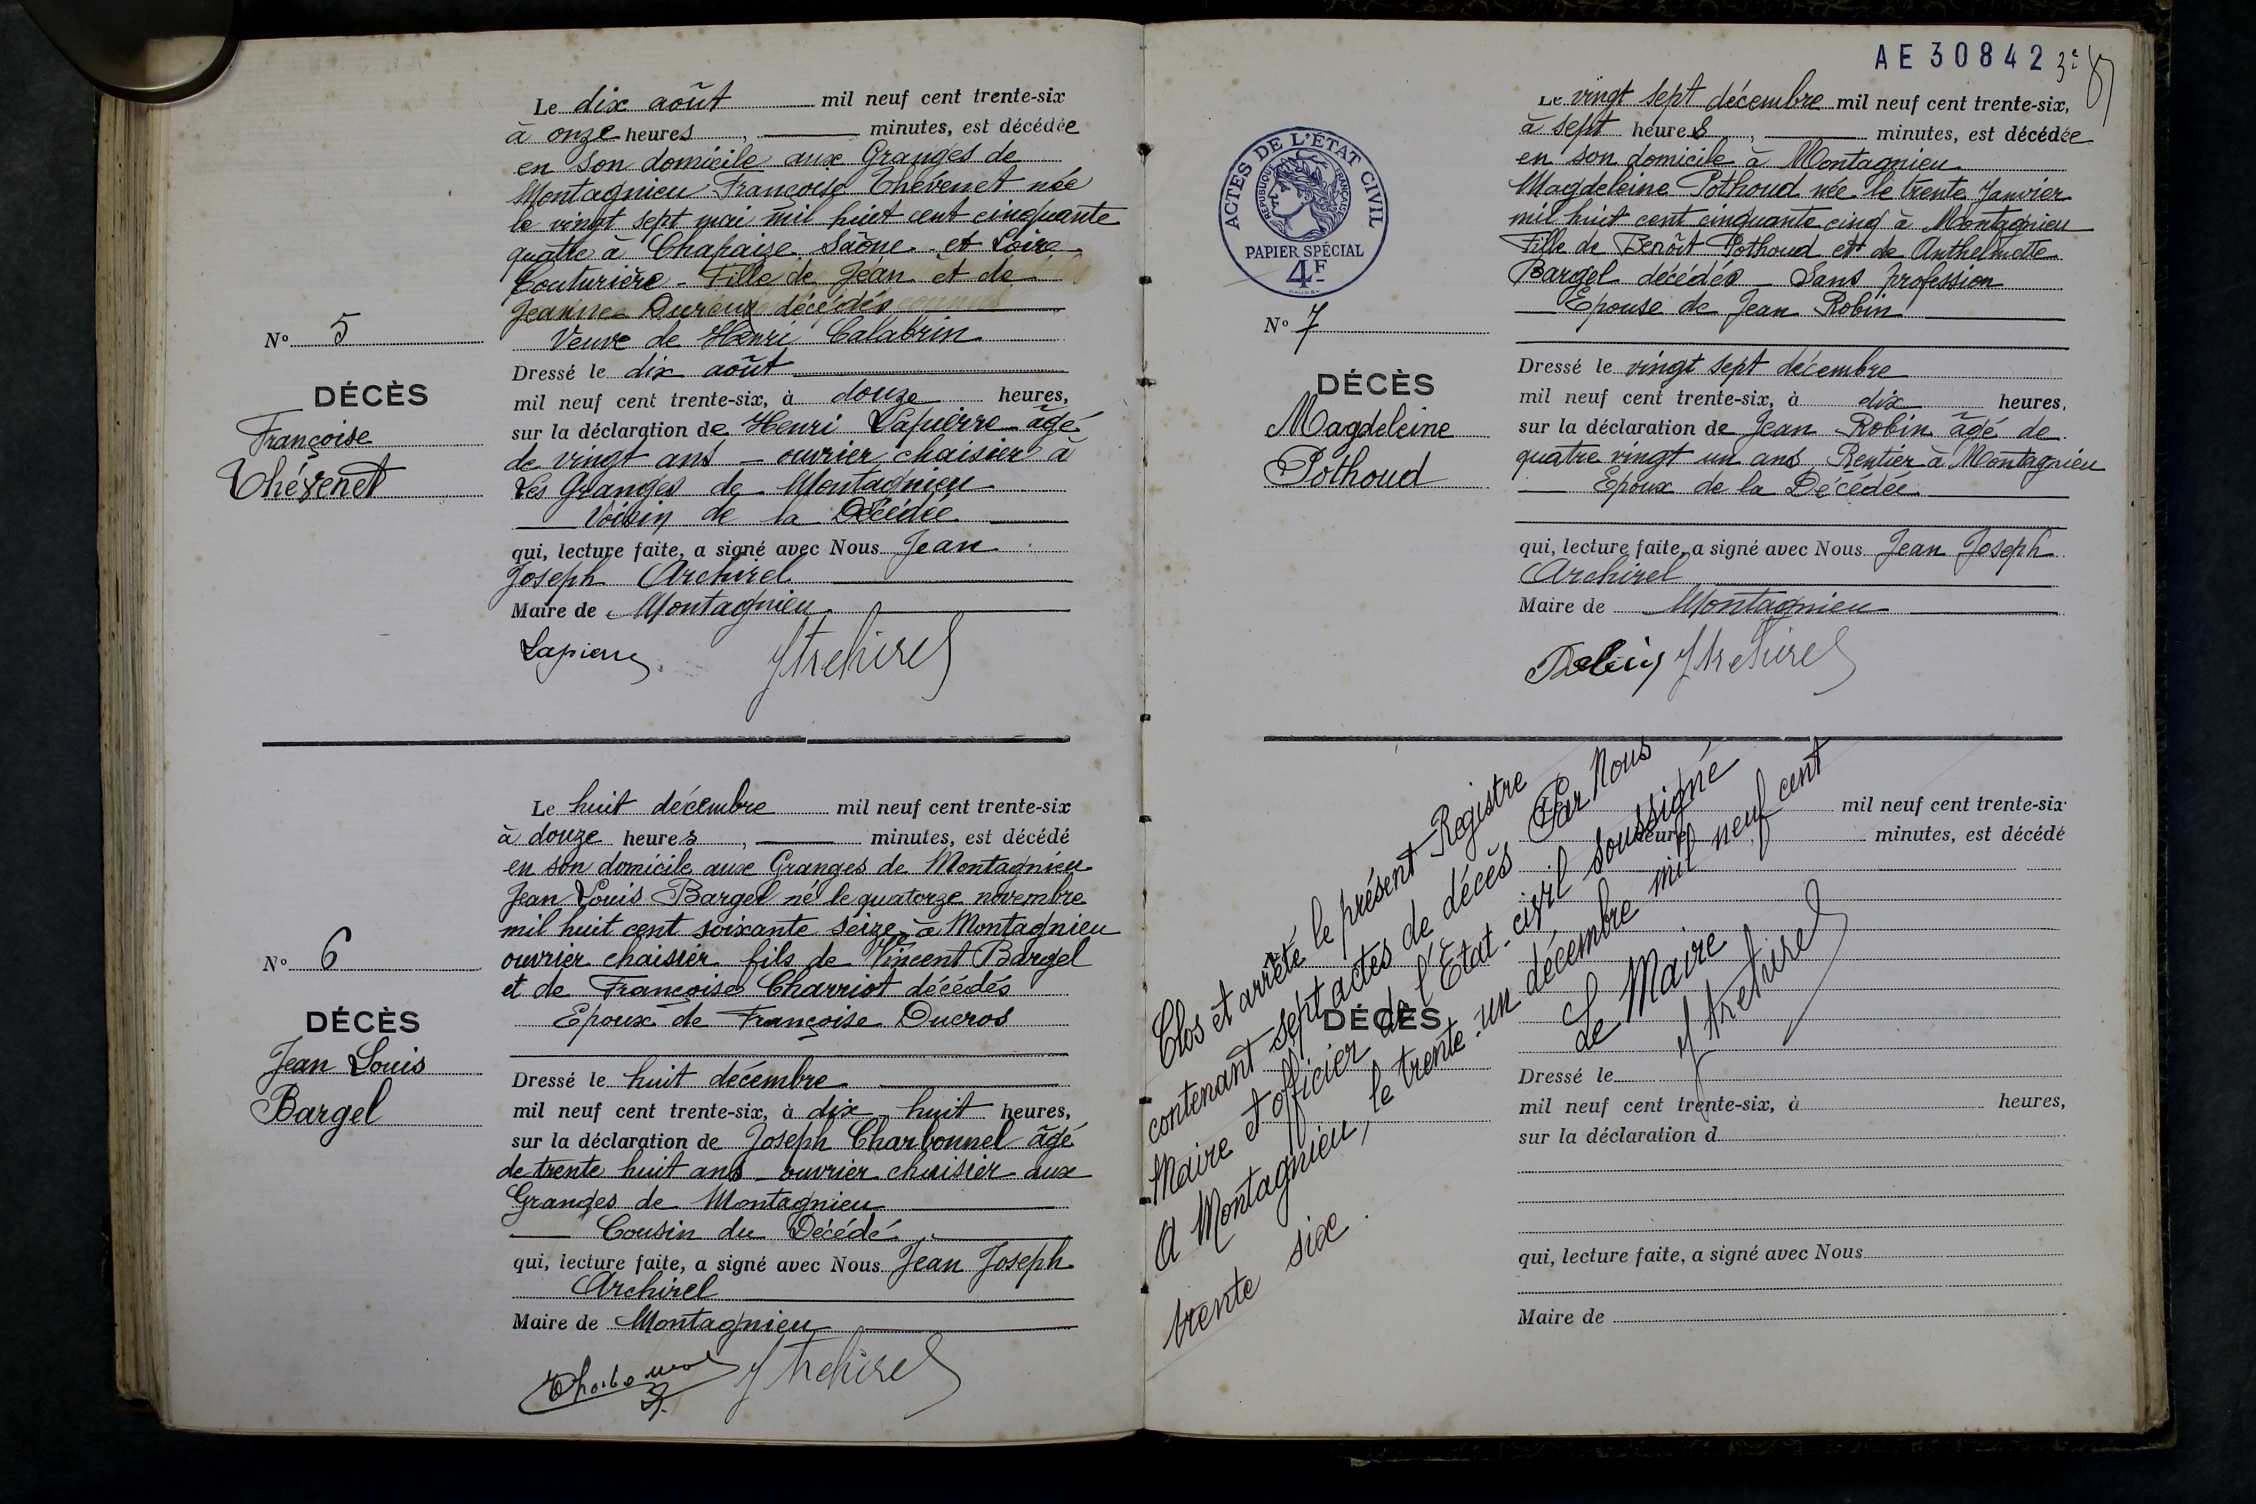 Le dix août mil neuf cent trente-six
à onze heures, minutes, est décédée
en son domicile aux Granges de
Montagnieu Françoise Thévenet née
le vingt sept mai mil huit cent cinquante
quatre à Chapaize Saône et Loire
Couturière - Fille de Jean et de
Jeanne Dureux décédés
Veuve de Henri Calabrin
Nº 5
DÉCÈS
Françoise
Thévenet
Dressé le dix août
mil neuf cent trente-six, à douze heures,
sur la déclaration de Henri Lapierre âgé
de vingt ans - ouvrier chaisier à
Les Granges de Montagnieu
Voisin de la Décédée
qui, lecture faite, a signé avec Nous Jean
Joseph Archirel
Maire de Montagnieu
Lapierre JArchirel
Le huit décembre mil neuf cent trente-six
à douze heures, minutes, est décédé
en son domicile aux Granges de Montagnieu
Jean Louis Bargel né le quatorze novembre
mil huit cent soixante seize à Montagnieu
ouvrier chaisier fils de Vincent Bargel
et de Françoise Charriot décédés
Epoux de Françoise Ducros
Nº 6
DÉCÈS
Jean Louis
Bargel
Dressé le huit décembre
mil neuf cent trente-six, à dix-huit heures,
sur la déclaration de Joseph Charbonnel âgé
de trente huit ans - ouvrier chaisier aux
Granges de Montagnieu
Cousin du Décédé
qui, lecture faite, a signé avec Nous Jean Joseph
Archirel
Maire de Montagnieu
Charbonnel J. JArchirel
AE 30842
ACTES DE L'ÉTAT CIVIL
RÉPUBLIQUE FRANÇAISE
PAPIER SPÉCIAL
4F
Le vingt sept décembre mil neuf cent trente-six,
à sept heures, minutes, est décédée
en son domicile à Montagnieu
Magdeleine Pothoud née le trente Janvier
mil huit cent cinquante cinq à Montagnieu
Fille de Benoît Pothoud et de Anthelmette
Bargel décédés - Sans profession
Epouse de Jean Robin
Nº 7
DÉCÈS
Magdeleine
Pothoud
Dressé le vingt sept décembre
mil neuf cent trente-six, à dix heures,
sur la déclaration de Jean Robin âgé de
quatre vingt un ans Rentier à Montagnieu
Epoux de la Décédée
qui, lecture faite, a signé avec Nous Jean Joseph
Archirel
Maire de Montagnieu
JArchirel
Clos et arrêté le présent Registre
contenant sept actes de décès Par Nous
Maire et officier de l'Etat-civil soussigné
A Montagnieu, le trente-un décembre mil neuf cent
trente six.
Le Maire
JArchirel
mil neuf cent trente-six
heure minutes, est décédé
DÉCÈS
Dressé le
mil neuf cent trente-six, à heures,
sur la déclaration d
qui, lecture faite, a signé avec Nous
Maire de